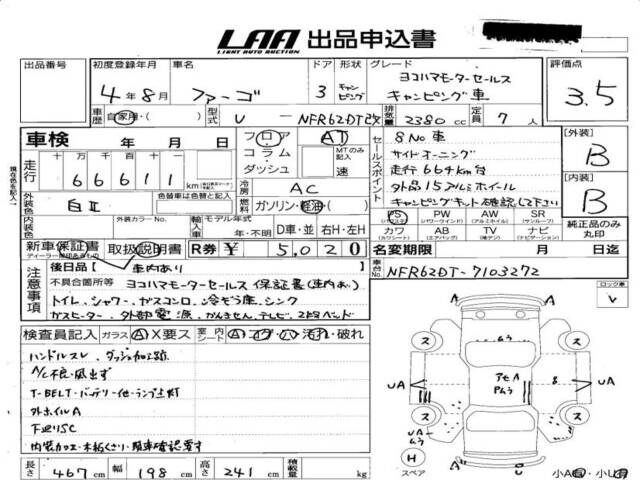 LAA 出品申込書
LIGHT AUTO AUCTION
出品番号 初度登録年月 車名 ドア 形状 グレード 評価点
4年8月 ファーゴ 3 キャンピング ヨコハマモーターセールス キャンピング車 3.5
車歴 自家用・( ) 型式 U - NFR62DT改 排気量 2380cc 定員 7人
車検 年 月 日 フロア AT 8No車 [外装]
走行 十万 万 千 百 十 コラム MTのみ記入 サイドオーニング B
66611 km ダッシュ 速 走行66千キロ台
セールスポイント 外品15アルミホイール [内装]
外装色 白Ⅱ 色替車は色替え前色 冷房 AC キャンピングキット確認して下さい B
燃料 ガソリン・軽油・( )
PS PW AW SR 純正品のみ丸印
(パワステ) (パワーウインド) (アルミホイール) (サンルーフ)
カワ AB TV ナビ
(カワシート) (エアバッグ) (テレビ) (ナビゲーション)
内装色 外装カラーNo. 輸入車 モデル年式 年・不明 D車・並 右H・左H
新車保証書 取扱説明書 R券 ¥ 5,020 名変期限 月 日迄
ディーラー保証印あるもの
後日品【 車内あり 】 車台No. NFR62DT-7103272
注意事項 不具合箇所等 ヨコハマモーターセールス保証書(車内あり)
トイレ、シャワー、ガスコンロ、冷ぞう庫、シンク
ガスヒーター、外部電源、かんせん、テレビ、2段ベッド
ロック車
V
検査員記入 ガラス Ⓐ X要ス 室内シート Ⓐ・コゲ・穴・汚れ・破れ
ハンドルスレ、ダッシュ加工跡
A/C不良・風出ず
T-BELT・バッテリー他・ランプ点灯
外ホイルA
下廻りSC
内装カビ
長さ 467cm 幅 198cm 高さ 241cm 積載量 kg
ス ス
UA アモA 8 UA
ス ス
UA
H
スペア
小A・小U